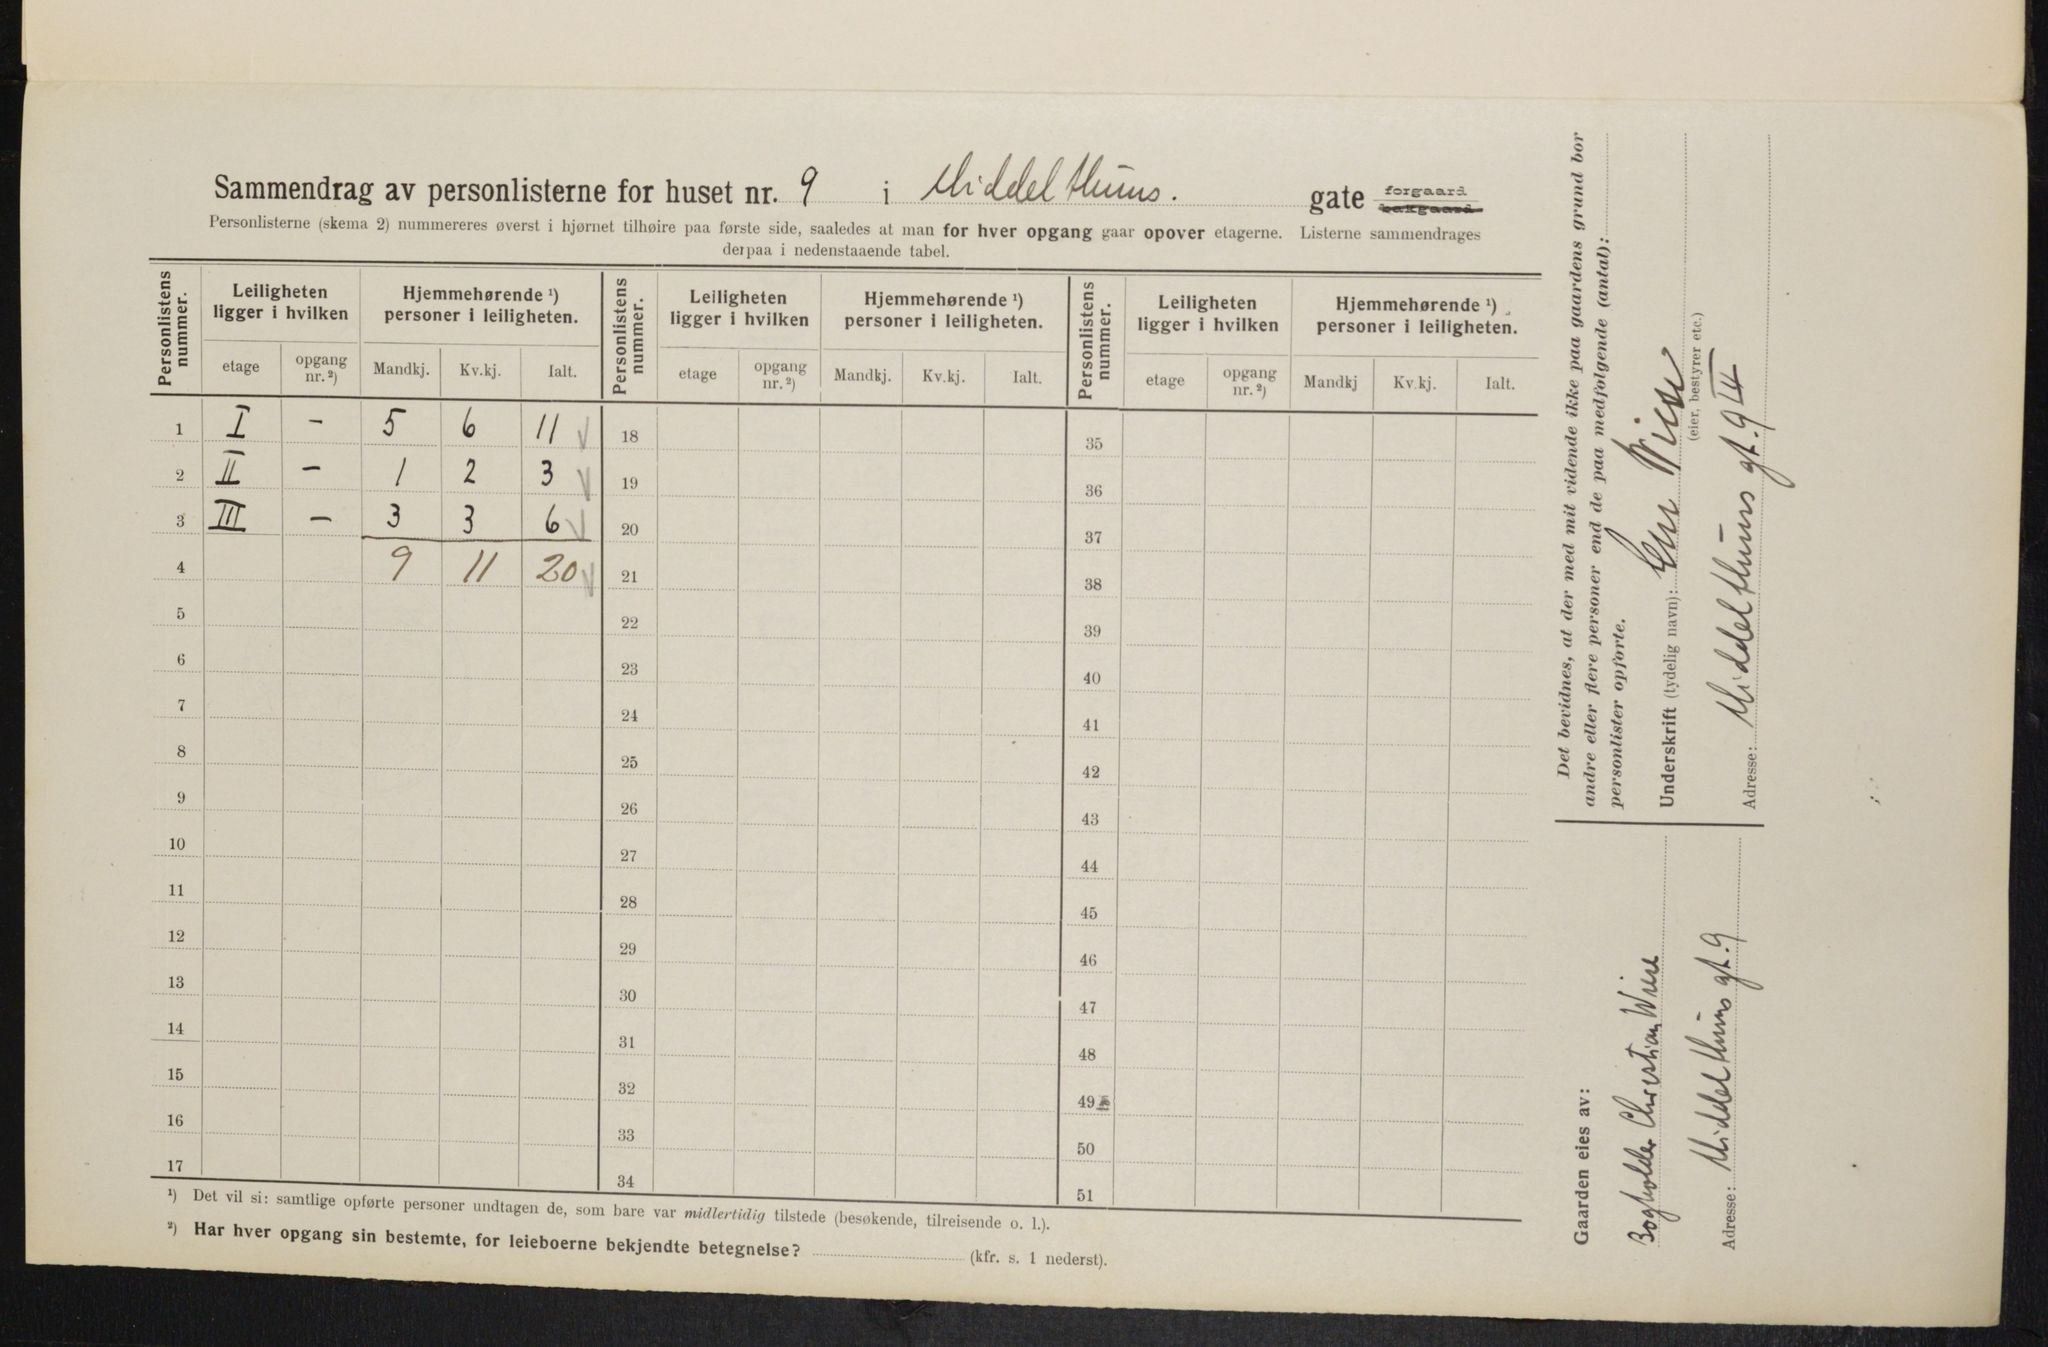 Sammendrag av personlisterne for huset nr. 9 i Middelthuns. gate forgaard
bakgaard
Personlisterne (skema 2) nummereres øverst i hjørnet tilhøire paa første side, saaledes at man for hver opgang gaar opover etagerne. Listerne sammendrages
derpaa i nedenstaaende tabel.
Personlistens nummer. Leiligheten ligger i hvilken Hjemmehørende ¹) personer i leiligheten. Personlistens nummer. Leiligheten ligger i hvilken Hjemmehørende ¹) personer i leiligheten. Personlistens nummer. Leiligheten ligger i hvilken Hjemmehørende ¹) personer i leiligheten.
etage opgang nr. ²) Mandkj. Kv.kj. Ialt. etage opgang nr. ²) Mandkj. Kv.kj. Ialt. etage opgang nr. ²) Mandkj Kv.kj. Ialt.
1 I – 5 6 11 18 35
2 II – 1 2 3 19 36
3 III – 3 3 6 20 37
4 9 11 20 21 38
5 22 39
6 23 40
7 24 41
8 25 42
9 26 43
10 27 44
11 28 45
12 29 46
13 30 47
14 31 48
15 32 49
16 33 50
17 34 51
¹) Det vil si: samtlige opførte personer undtagen de, som bare var midlertidig tilstede (besøkende, tilreisende o. l.).
²) Har hver opgang sin bestemte, for leieboerne bekjendte betegnelse? (kfr. s. 1 nederst).
Det bevidnes, at der med mit vidende ikke paa gaardens grund bor
andre eller flere personer end de paa medfølgende (antal):
personlister opførte.
Underskrift (tydelig navn): Chr Wiese
(eier, bestyrer etc.)
Adresse: Middelthuns gt. 9 III
Gaarden eies av:
Bogholder Christian Wiese
Adresse: Middelthuns gt. 9